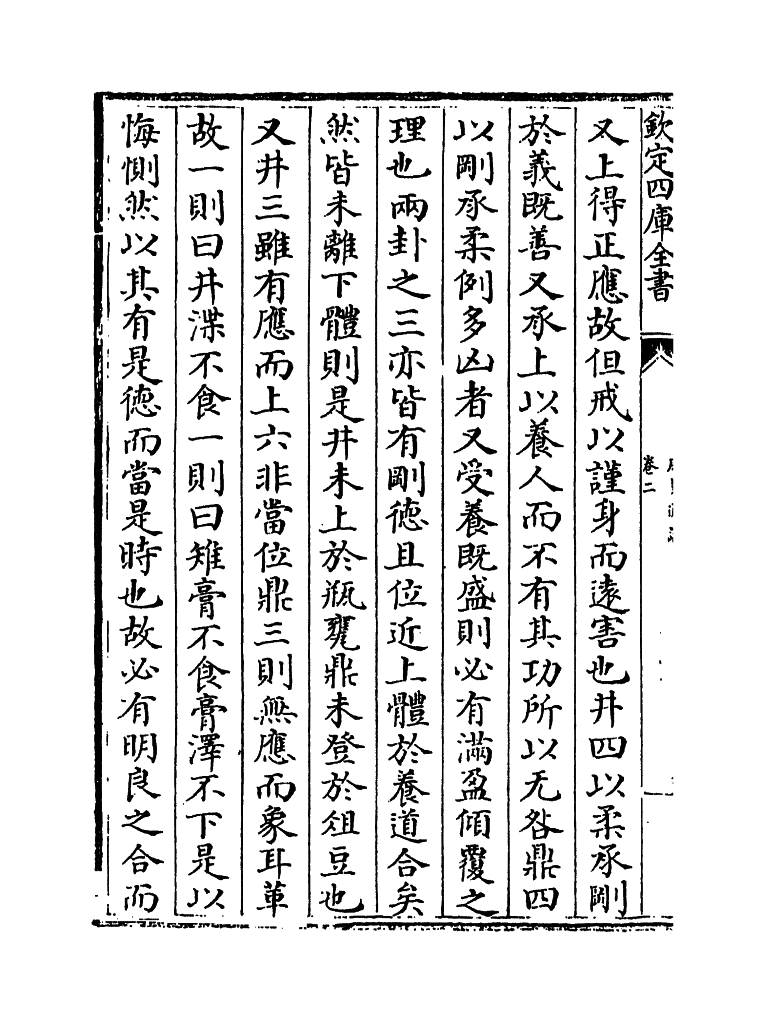 欽定四庫全書
卷二
又上得正應故但戒以謹身而遠害也井四以柔承剛
於義既善又承上以養人而不有其功所以无咎鼎四
以剛承柔例多凶者又受養既盛則必有滿盈傾覆之
理也兩卦之三亦皆有剛德且位近上體於養道合矣
然皆未離下體則是井未上於瓶甕鼎未登於俎豆也
又井三雖有應而上六非當位鼎三則無應而象耳革
故一則曰井渫不食一則曰雉膏不食膏澤不下是以
悔惻然以其有是德而當是時也故必有明良之合而